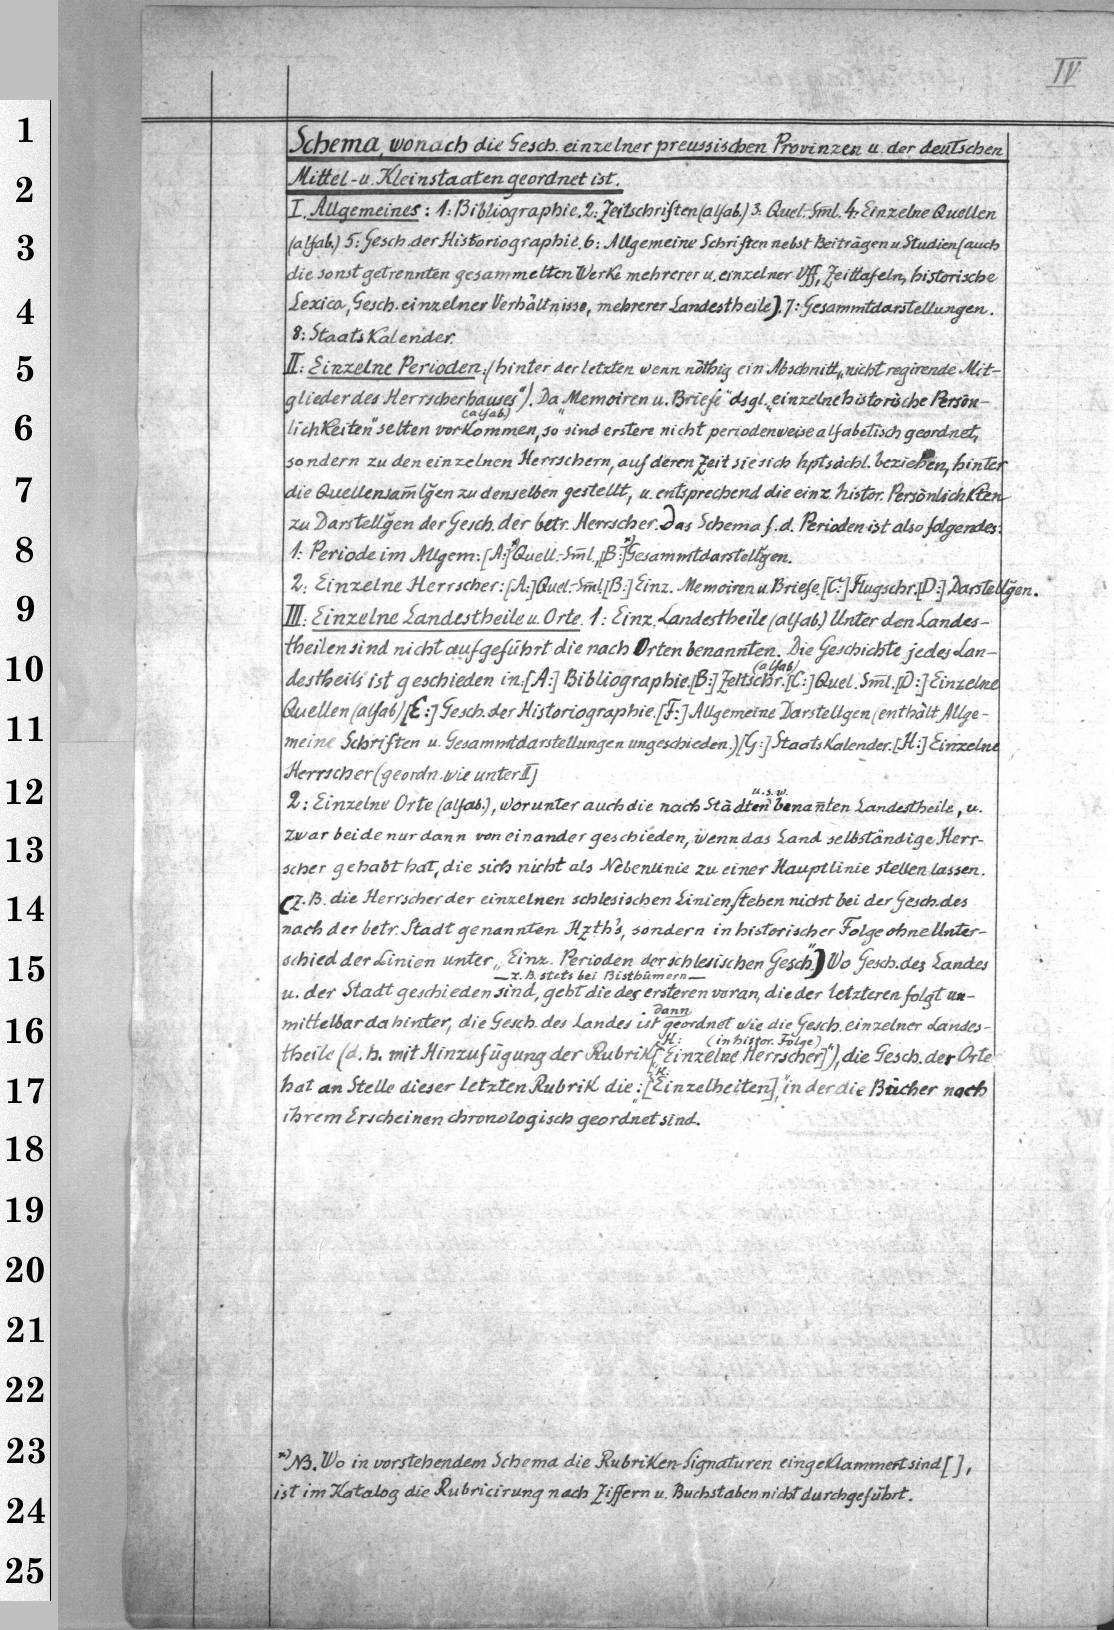 IV
1
Schema, wonach die Gesch. einzelner preussischen Provinzen u. der deutschen
2
Mittel- u. Kleinstaaten geordnet ist.
I. Allgemeines: 1: Bibliographie. 2: Zeitschriften (alfab.) 3: Quel. Sm̅l. 4: Einzelne Quellen
3
(alfab.) 5: Gesch. der Historiographie. 6: Allgemeine Schriften nebst Beiträgen u. Studien (auch
die sonst getrennten gesammelten Werke mehrerer u. einzelner Vff, Zeittafeln, historische
4
Lexica, Gesch. einzelner Verhältnisse, mehrerer Landestheile). 7: Gesammtdarstellungen.
8: Staatskalender.
5
II: Einzelne Perioden. (hinter der letzten wenn nöthig ein Abschnitt „nicht regirende Mit-
glieder des Herrscherhauses“). Da „Memoiren u. Briefe“ dsgl. „einzelne historische Persön-
6
(alfab)
lichkeiten“ selten vorkommen, so sind erstere nicht periodenweise alfabetisch geordnet,
sondern zu den einzelnen Herrschern, auf deren Zeit sie sich hptsächl. beziehen, hinter
7
die Quellensam̅lg̅en zu denselben gestellt, u. entsprechend die einz. histor. Persönlichkten
zu Darstellg̅en der Gesch. der betr. Herrscher. Das Schema f. d. Perioden ist also folgendes:
8
1: Periode im Allgem: [A:]*) Quell.-Sm̅l., [B:]*) Gesammtdarstellg̅en.
2: Einzelne Herrscher: [A:] Quel.-Sm̅l. [B:] Einz. Memoiren u Briefe. [C:] Flugschr. [D:] Darstellg̅en.
9
III: Einzelne Landestheile u. Orte. 1: Einz. Landestheile (alfab.) Unter den Landes-
theilen sind nicht aufgeführt die nach Orten benannten. Die Geschichte jedes Lan-
10
(alfab)
destheils ist geschieden in: [A:] Bibliographie. [B:] Zeitschr. [C:] Quel. Sm̅l. [D:] Einzelne
Quellen (alfab) [E:] Gesch. der Historiographie. [F:] Allgemeine Darstellgen (enthält Allge-
11
meine Schriften u. Gesammtdarstellungen ungeschieden.) [G:] Staatskalender. [H:] Einzelne
Herrscher (geordn. wie unter II)
12
u. s. w.
2: Einzelne Orte (alfab.), worunter auch die nach Städten benan̅ten Landestheile, u.
zwar beide nur dann von einander geschieden, wenn das Land selbständige Herr-
13
scher gehabt hat, die sich nicht als Nebenlinie zu einer Hauptlinie stellen lassen.
14
(Z. B. die Herrscher der einzelnen schlesischen Linien stehen nicht bei der Gesch. des
nach der betr. Stadt genannten Hzth's, sondern in historischer Folge ohne Unter-
15
schied der Linien unter „Einz. Perioden der schlesischen Gesch.“) Wo Gesch. des Landes
— z. B. stets bei Bisthümern —
u. der Stadt geschieden sind, geht die des ersteren voran, die der letzteren folgt un-
16
dann
mittelbar dahinter, die Gesch. des Landes ist geordnet wie die Gesch. einzelner Landes-
H: (in histor. Folge)
theile (d. h. mit Hinzufügung der Rubrik „[Einzelne Herrscher]“), die Gesch. der Orte
17
K:
hat an Stelle dieser letzten Rubrik die: „[Einzelheiten]“, in der die Bücher nach
ihrem Erscheinen chronologisch geordnet sind.
18
19
20
21
22
23
*) NB. Wo in vorstehendem Schema die Rubriken-Signaturen eingeklammert sind [ ],
24
ist im Katalog die Rubricirung nach Ziffern u. Buchstaben nicht durchgeführt.
25